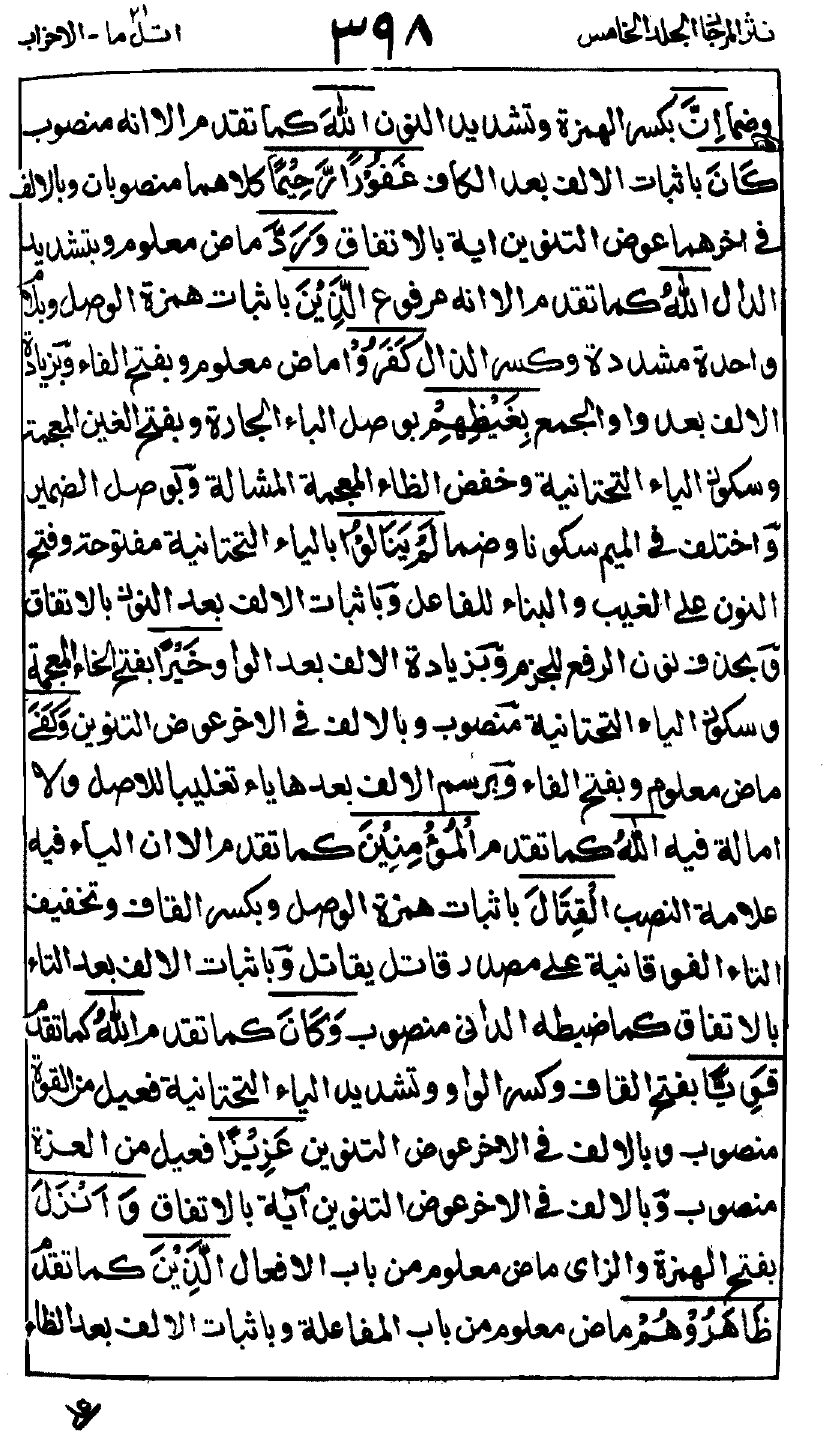 نثر المرجان الجلد الخامس ٣٩٨ اتل ما ٢١ - الاحزاب
وضما اِنَّ بكسر الهمزة وتشديد النون اللّٰهَ كما تقدم الا انه منصوب
كَانَ باثبات الالف بعد الكاف غَفُوْرًا رَّحِيْمًا كلاهما منصوبان وبالالف
فى اخرهما عوض التنوين اية بالاتفاق وَرَدَّ ماض معلوم وبتشديد
الدال اللّٰهُ كما تقدم الا انه مرفوع الَّذِيْنَ باثبات همزة الوصل وبلام
واحدة مشددة وكسر الذال كَفَرُوْا ماض معلوم وبفتح الفاء وبزيادة
الالف بعد واو الجمع بِغَيْظِهِمْ بوصل الباء الجارة وبفتح الغين المعجمة
وسكون الياء التحتانية وخفض الظاء المعجمة المشالة وبوصل الضمير
واختلف فى الميم سكونا وضما لَمْ يَنَالُوْا بالياء التحتانية مفتوحة وفتح
النون على الغيب والبناء للفاعل وباثبات الالف بعد النون بالاتفاق
وبحذف نون الرفع للجزم وبزيادة الالف بعد الواو خَيْرًا بفتح الخاء المعجمة
وسكون الياء التحتانية منصوب وبالالف فى الاخر عوض التنوين وَكَفَى
ماض معلوم وبفتح الفاء وبرسم الالف بعدها ياء تغليبا للاصل ولا
امالة فيه اللّٰهُ كما تقدم اَلْمُؤْمِنِيْنَ كما تقدم الا ان الياء فيه
علامة النصب الْقِتَالَ باثبات همزة الوصل وبكسر القاف وتخفيف
التاء الفوقانية على مصدر قاتل يقاتل وباثبات الالف بعد التاء
بالاتفاق كما ضبطه الدانى منصوب وَكَانَ كما تقدم اللّٰهُ كما تقدم
قَوِيًّا بفتح القاف وكسر الواو وتشديد الياء التحتانية فعيل من القوة
منصوب وبالالف فى الاخر عوض التنوين عَزِيْزًا فعيل من العزة
منصوب وبالالف فى الاخر عوض التنوين اٰية بالاتفاق وَاَنْزَلَ
بفتح الهمزة والزاى ماض معلوم من باب الافعال الَّذِيْنَ كما تقدم
ظَاهَرُوْهُمْ ماض معلوم من باب المفاعلة وباثبات الالف بعد الظاء